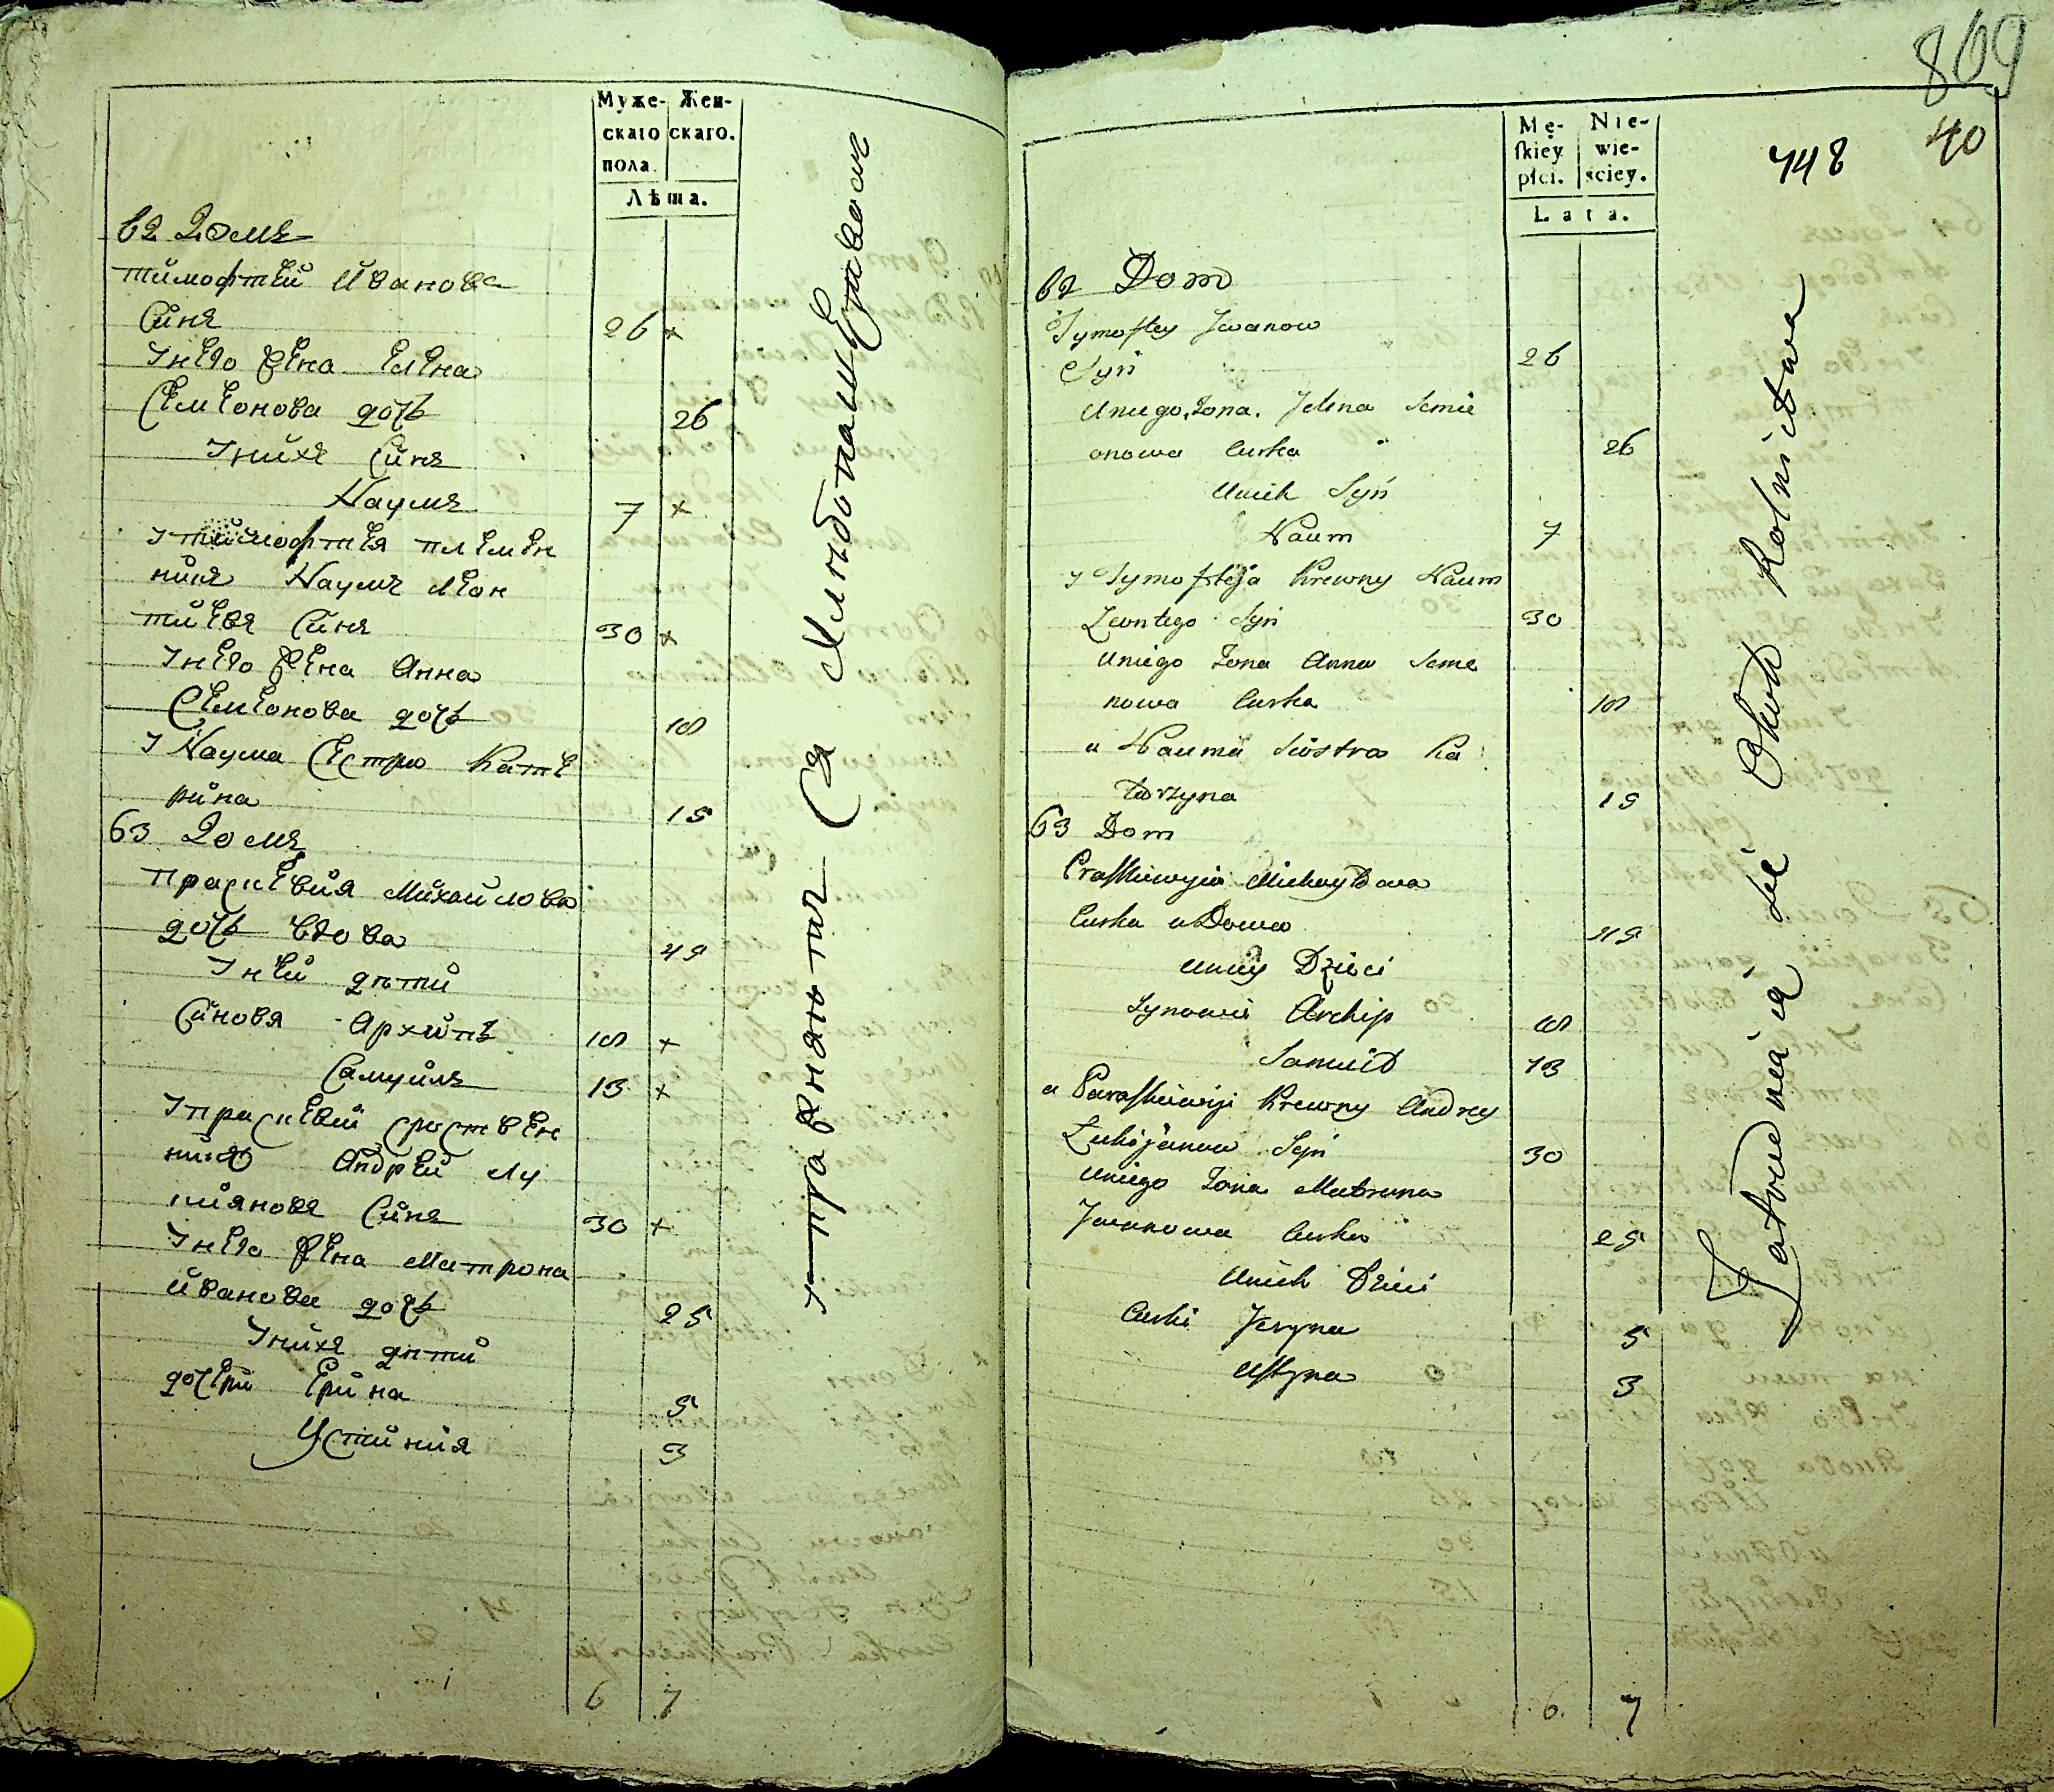 Муже- Жен-
скаго скаго.
пола
Лѣта.
62 Домъ
тимофтей Ивановъ
Синъ 26 x
Унего жена Елена
Семеонова дочь 26
Унихъ Синъ
Наумъ 7 x
У тимофтея племен
никъ Наумъ Леон
тиевъ Синъ 30 x
Унего жена Анна
Семеонова дочь 18
У Наума Сестра Кате
рина 15
63 Домъ
праскевия Михайлова
дочь вдова 49
Уней дѣти
Синовя Архипъ 18 x
Самуилъ 13 x
Упраскевии сроствен
никъ Андрей Лу
киановъ Синъ 30 x
Унего жена Матрона
Иванова дочь 25
Унихъ дѣти
дочери Ерина 5
Устиния 3
6 7
управняютъ Ся Хлѣбопашеством
869
40
748
Mę- Nie-
skiey wie-
płci. ściey.
Lata.
62 Dom
Tymoftey Jwanow
Syn 26
Uniego Zona Jelena Semie
onowa Curka 26
Unich Syn
Naum 7
y Tymofteja Krewny Naum
Leontego Syn 30
Uniego Zona Anna Seme
nowa Curka 18
u Nauma Siostra Ka
tarzyna 15
63 Dom
Praskiewyia Michayłowa
Curka uDowa 49
Uniey Dzieci
Synowie Archip 18
Samuił 13
u Paraskiewiji Krewny Andrey
Łukijanow Syn 30
Uniego Zona Matruna
Jwanowa Curka 25
Unich Dzieci
Curki Jeryna 5
Ustyna 3
6 7
Zatrudniaią się Około Rolnictwa